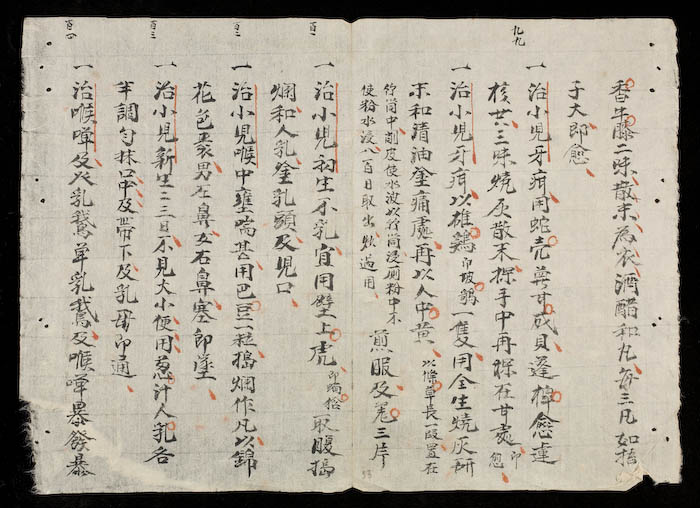 九九
香牛藤二味散末為衣酒醋和丸每三凡如指
子大即愈
一治小児牙疳用蛇壳甘咸貝蓬愈連
核三味燒灰散末搽手中再搽在甘處即愈
一治小児牙疳以雄鷄一隻用全生燒灰研
末和清油塗痛處再以人中黄以草長一段置在
竹筒中削皮使水波以竹筒浸厠粉中不
使粉水浸八百日取出炒過用
煎服及三片
百一
一治小児初生不乳宜用壁上虎即取腹搗
爛和人乳塗乳頭及児口
百二
一治小児喉中壅喘甚用巴豆一粒搗爛作凡以錦
花包裹男左鼻女右鼻塞即墜
百三
一治小児新生二三日不見大小便用葱汁人乳各
半調匀抹口中及帶下及乳母即通
百四
一治喉及乳鵞单乳鵞及喉暴發暴